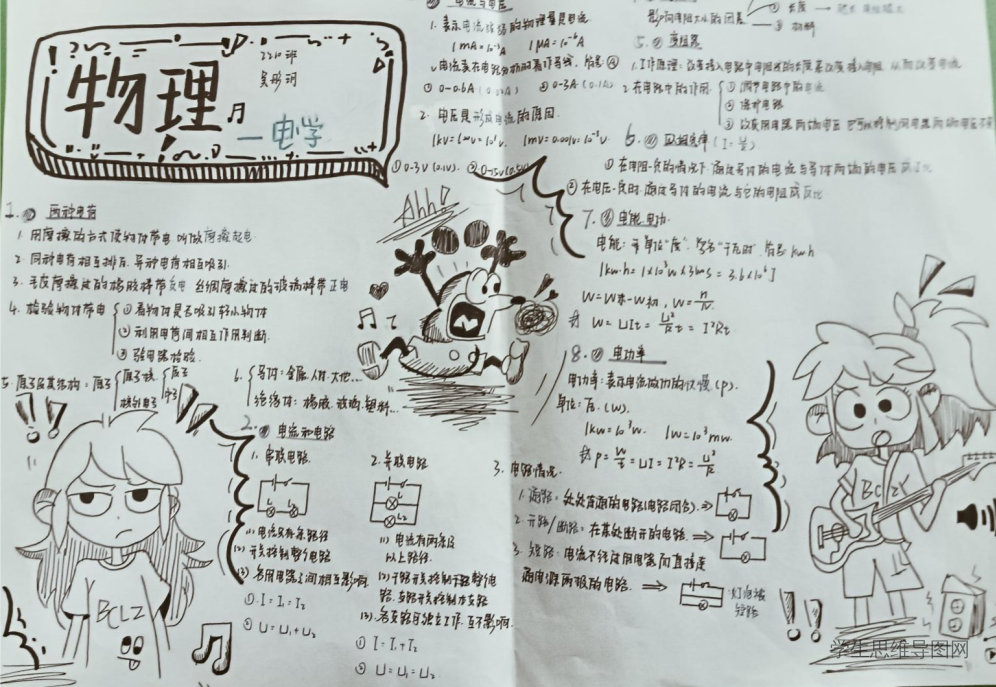 物理
2210班
—电学
1. 两种电荷
1. 用摩擦的方式使物体带电叫做摩擦起电.
2. 同种电荷相互排斥, 异种电荷相互吸引.
3. 毛皮摩擦过的橡胶棒带负电 丝绸摩擦过的玻璃棒带正电
4. 检验物体带电
① 看物体是否吸引轻小物体
② 利用电荷间相互作用判断.
③ 验电器检验.
5. 原子及其结构: 原子
原子核
质子
中子
核外电子
6.
导体: 金属.人体.大地...
绝缘体: 橡胶, 玻璃, 塑料...
2. 电流和电路
1. 串联电路
(1) 电流只有一条路径
(2) 开关控制整个电路
(3) 各用电器之间相互影响
① I=I₁=I₂
② U=U₁+U₂
2. 并联电路
L₂
(1) 电流有两条及
以上路径.
(2) 干路开关控制干路整个电
路, 支路开关控制本支路
(3) 各支路可独立工作, 互不影响.
① I=I₁+I₂
② U=U₁=U₂
3. 电路情况.
1. 通路: 处处连通的电路(电路闭合). ⇒
2. 开路/断路: 在某处断开的电路. ⇒
3. 短路: 电流不经过用电器而直接连
通电源两极的电路. ⇒
灯泡被
短路
电流与电压
1. 表示电流强弱的物理量是电流.
1mA=10⁻³A 1μA=10⁻⁶A
① 0-0.6A (0.02A) ② 0-3A (0.1A)
2. 电压是形成电流的原因.
1kV=10³V 1mV=0.001V=10⁻³V
① 0-3V (0.1V) ② 0-15V (0.5V)
影响电阻大小的因素
① 长度
② 材料
5. 变阻器
2. 在电路中的作用
① 调节电路中的电流
② 保护电路
6. 欧姆定律
① 在电阻一定的情况下, 通过导体的电流与导体两端的电压成正比
② 在电压一定时, 通过导体的电流与它的电阻成反比
7. 电能.电功.
电能: 单位"度", 学名"千瓦时", 符号kw·h
1kw·h=1×10³W×3600s=3.6×10⁶J
W=W末-W初, W=n/N
W=UIt=U²/R t=I²Rt
8. 电功率
电功率: 表示电流做功的快慢(P).
单位: 瓦.(W).
1kw=10³w. 1W=10³mw.
P=W/t=UI=I²R=U²/R
Ahh!
BCLZ
BCLZY
学生思维导图网